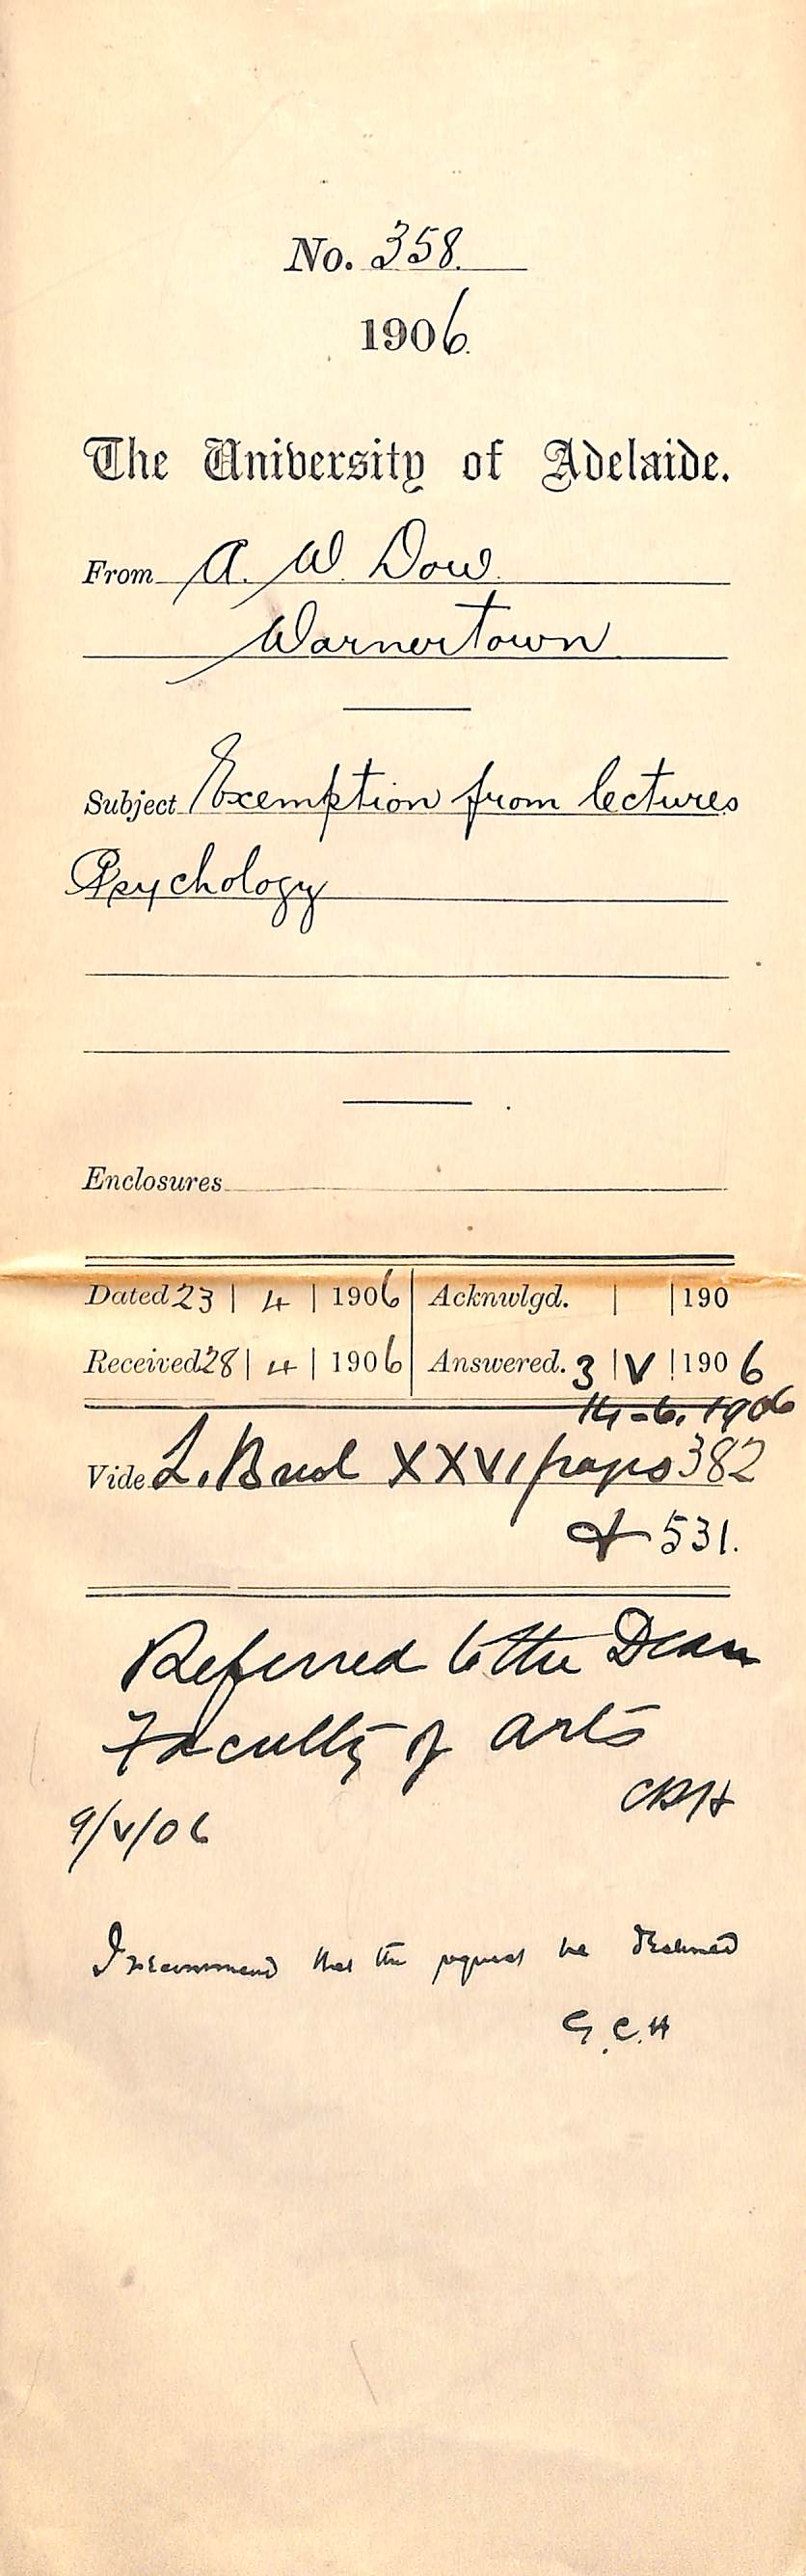 No. 358.
1906.
The University of Adelaide.
From A. W. Dow
Warnertown
Subject Exemption from lectures
Psychology
Enclosures
Dated 23 | 4 | 1906 Acknwlgd. | | 190
Received 28 | 4 | 1906 Answered. 3 | V | 1906
14-6. 1906
Vide L. Book XXVI pages 382
& 531.
Referred to the Dean
Faculty of Arts
CRH
9/V/06
I recommend that the request be declined
G.C.H